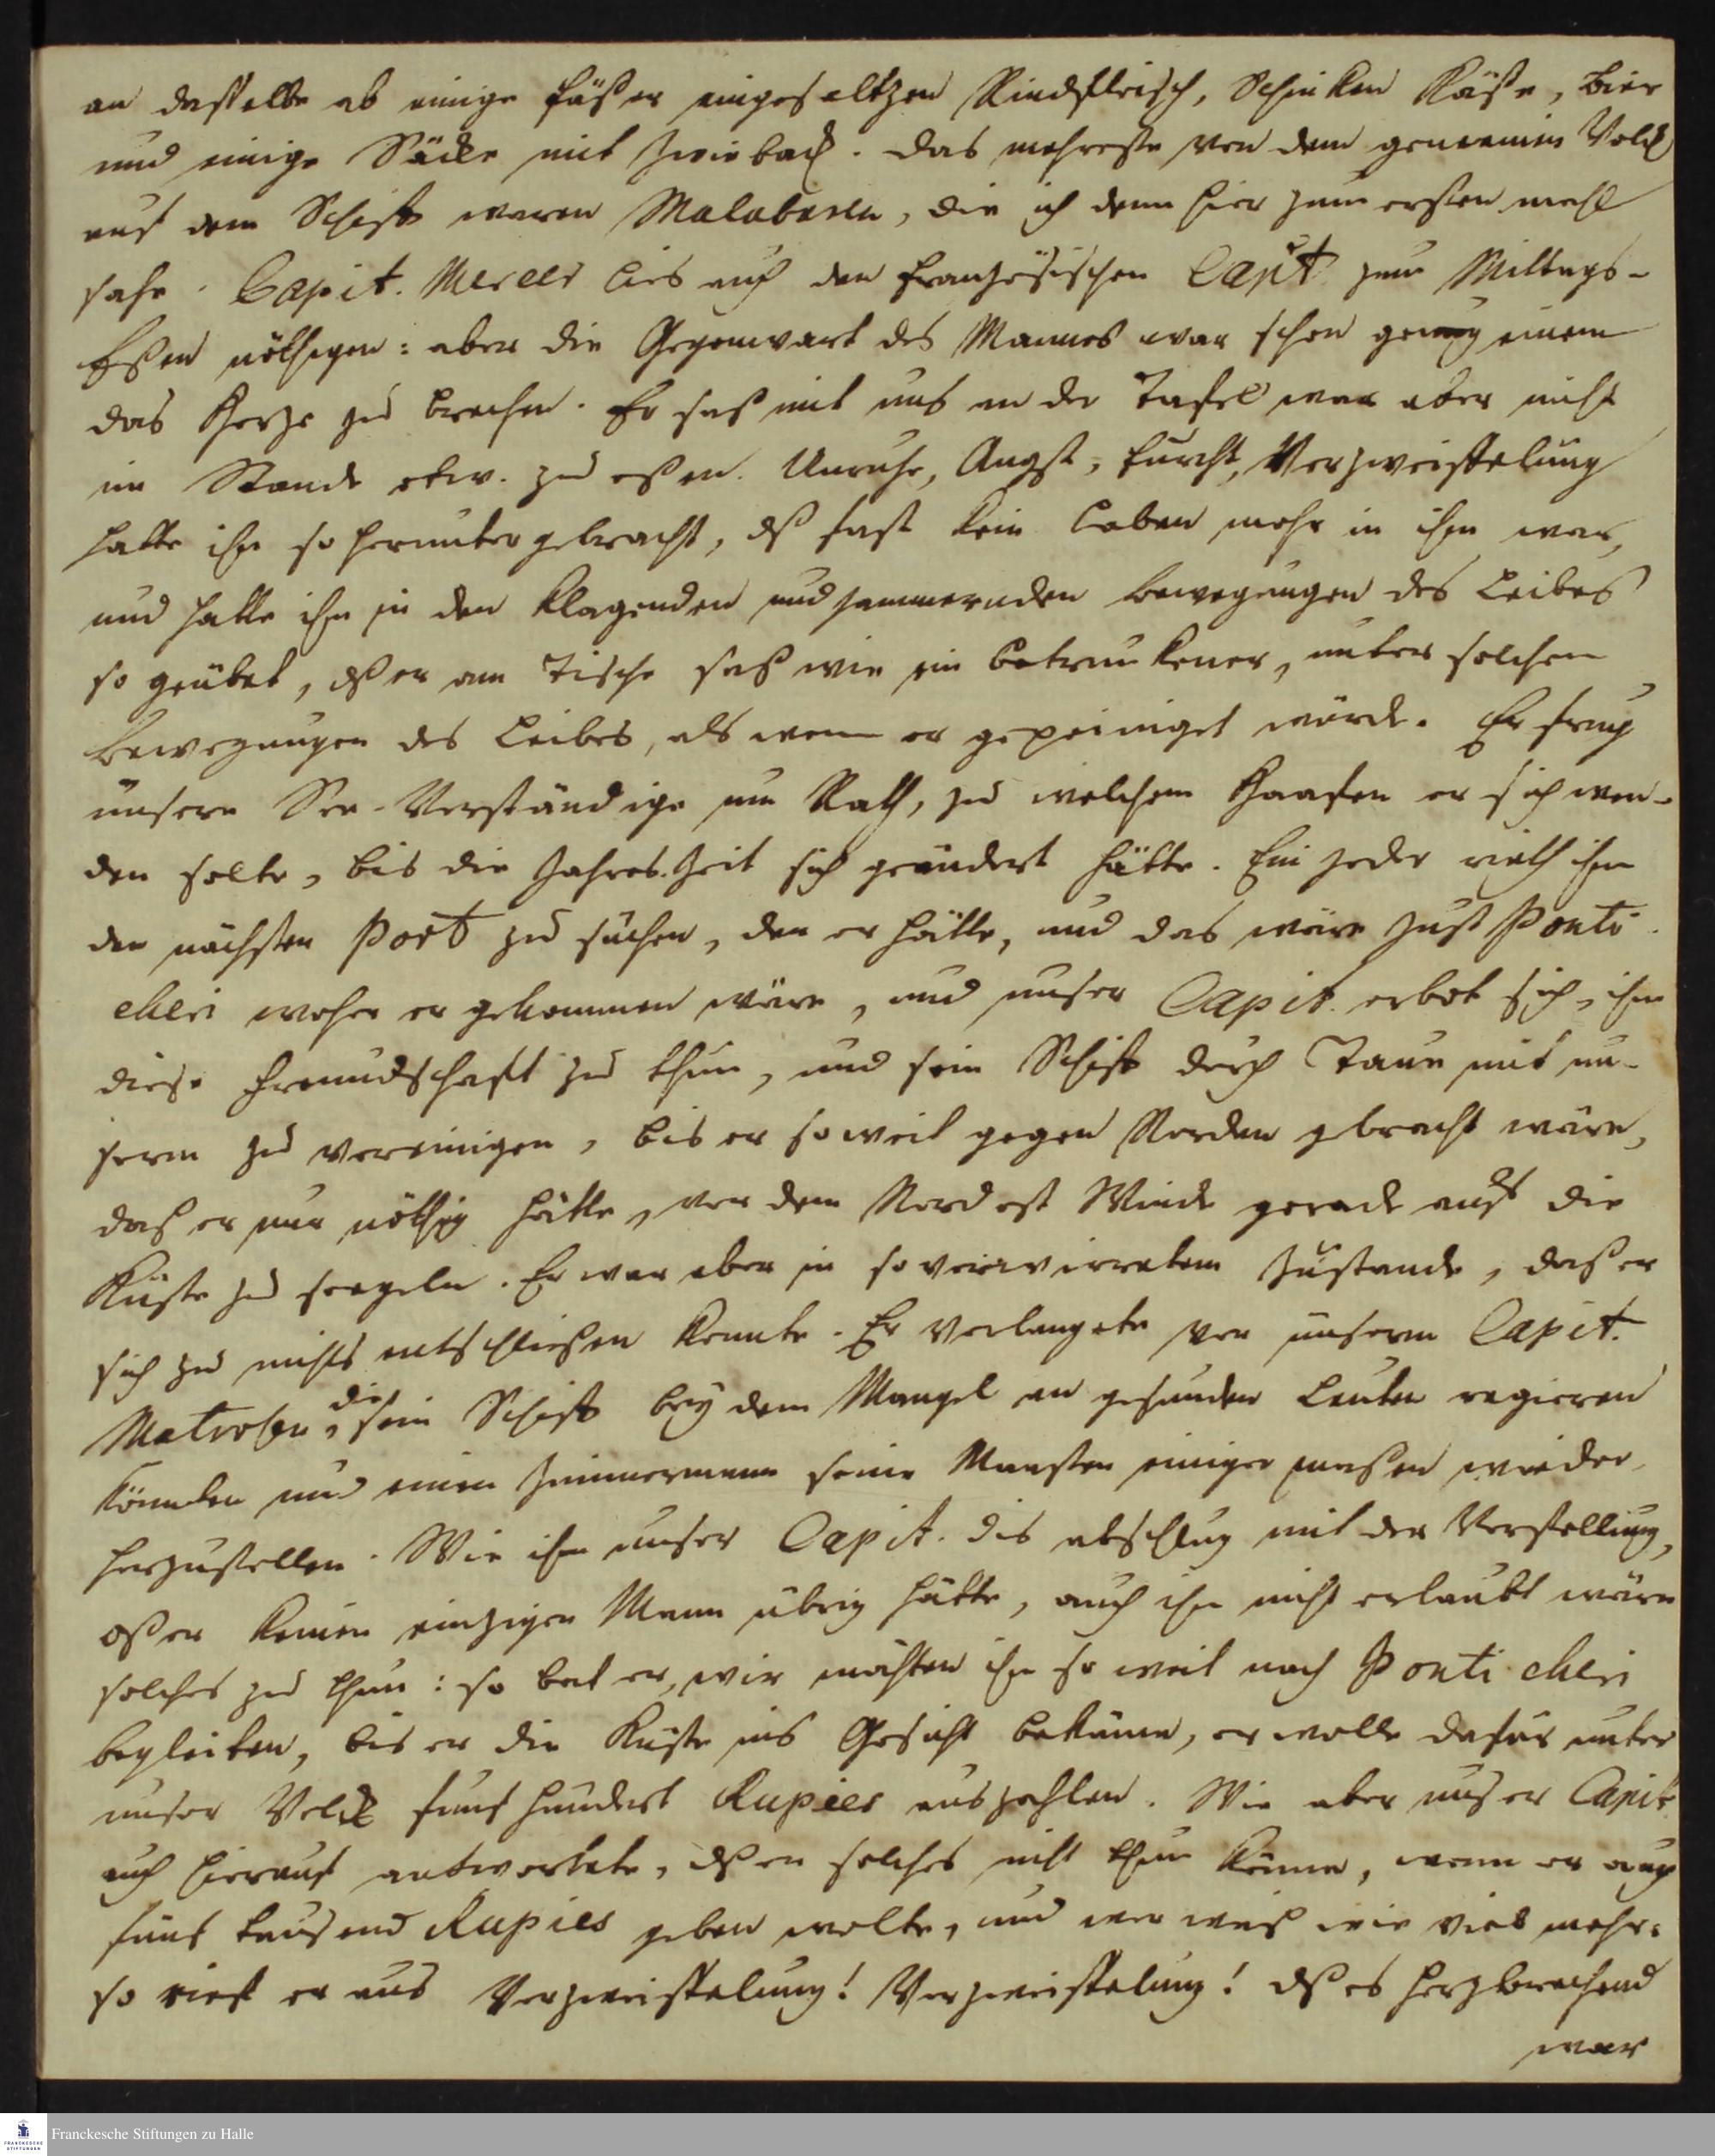 an dasselbe ab einige Fäßer eingesaltzen Rindfleisch, Schinken Käse, Bier
und einige Säcke mit Zwieback. Das mehreste von dem gemeinen Volck
auf dem Schiff waren Malabaren, die ich denn hier zum ersten mahl
sahe. Capit. Mercer lies auch den Französischen Capt. zum Mittags-
Eßen nöthigen: aber die Gegenwart des Mannes war schon genug einem
das Herze zu brechen. Er saß mit uns an der Tafel war aber nicht
im Stande etw. zu eßen. Unruhe, Angst, Furcht, Verzweiffelung
hatte ihn so herunter gebracht, dß fast kein Leben mehr in ihm war,
und hatte ihn in den klagenden und jammernden Bewegungen des Leibes
so geübet, dß er am Tische saß wie ein Betrunkener, unter solchen
Bewegungen des Leibes, als wenn er gepeiniget würde. Er frug
unsere See-Verständige um Rath, zu welchem Haafen er sich wen-
den solte, bis die Jahres-Zeit sich geändert hätte. Ein jeder rieth ihm
den nächsten Port zu suchen, den er hätte, und das wäre just Ponti-
cheri woher er gekommen wäre, und unser Capit. erbot sich, ihm
diese Freundschaft zu thun, und sein Schiff durch Taue mit un-
serm zu vereinigen, bis er so weit gegen Norden gebracht wäre,
daß er nur nöthig hätte, vor dem Nordost Winde gerade auf die
Küste zu seegeln. Er war aber in so verwirretem Zustande, daß er
sich zu nichts entschließen konnte. Er verlangete von unserm Capit.
Matrosen, die sein Schiff bey dem Mangel an gesunden Leuten regieren
könnten und einen Zimmermann seine Masten einiger maßen wieder
herzustellen. Wie ihm unser Capit. dis abschlug mit der Vorstellung,
dß er keinen einzigen Mann übrig hätte, auch ihm nicht erlaubt wäre
solches zu thun: so bat er, wir möchten ihn so weit nach Ponti cheri
begleiten, bis er die Küste ins Gesicht bekäme, er wolle dafür unter
unser Volck funf hundert Rupies auszahlen. Wie aber unser Capit.
auch hierauf antwortete, dß er solches nicht thun könne, wenn er auch
funf tausend Rupies geben wolte, und wer weiß wie viel mehr:
so rief er aus Verzweiffelung! Verzweiffelung! dß es herzbrechend
war
Franckesche Stiftungen zu Halle